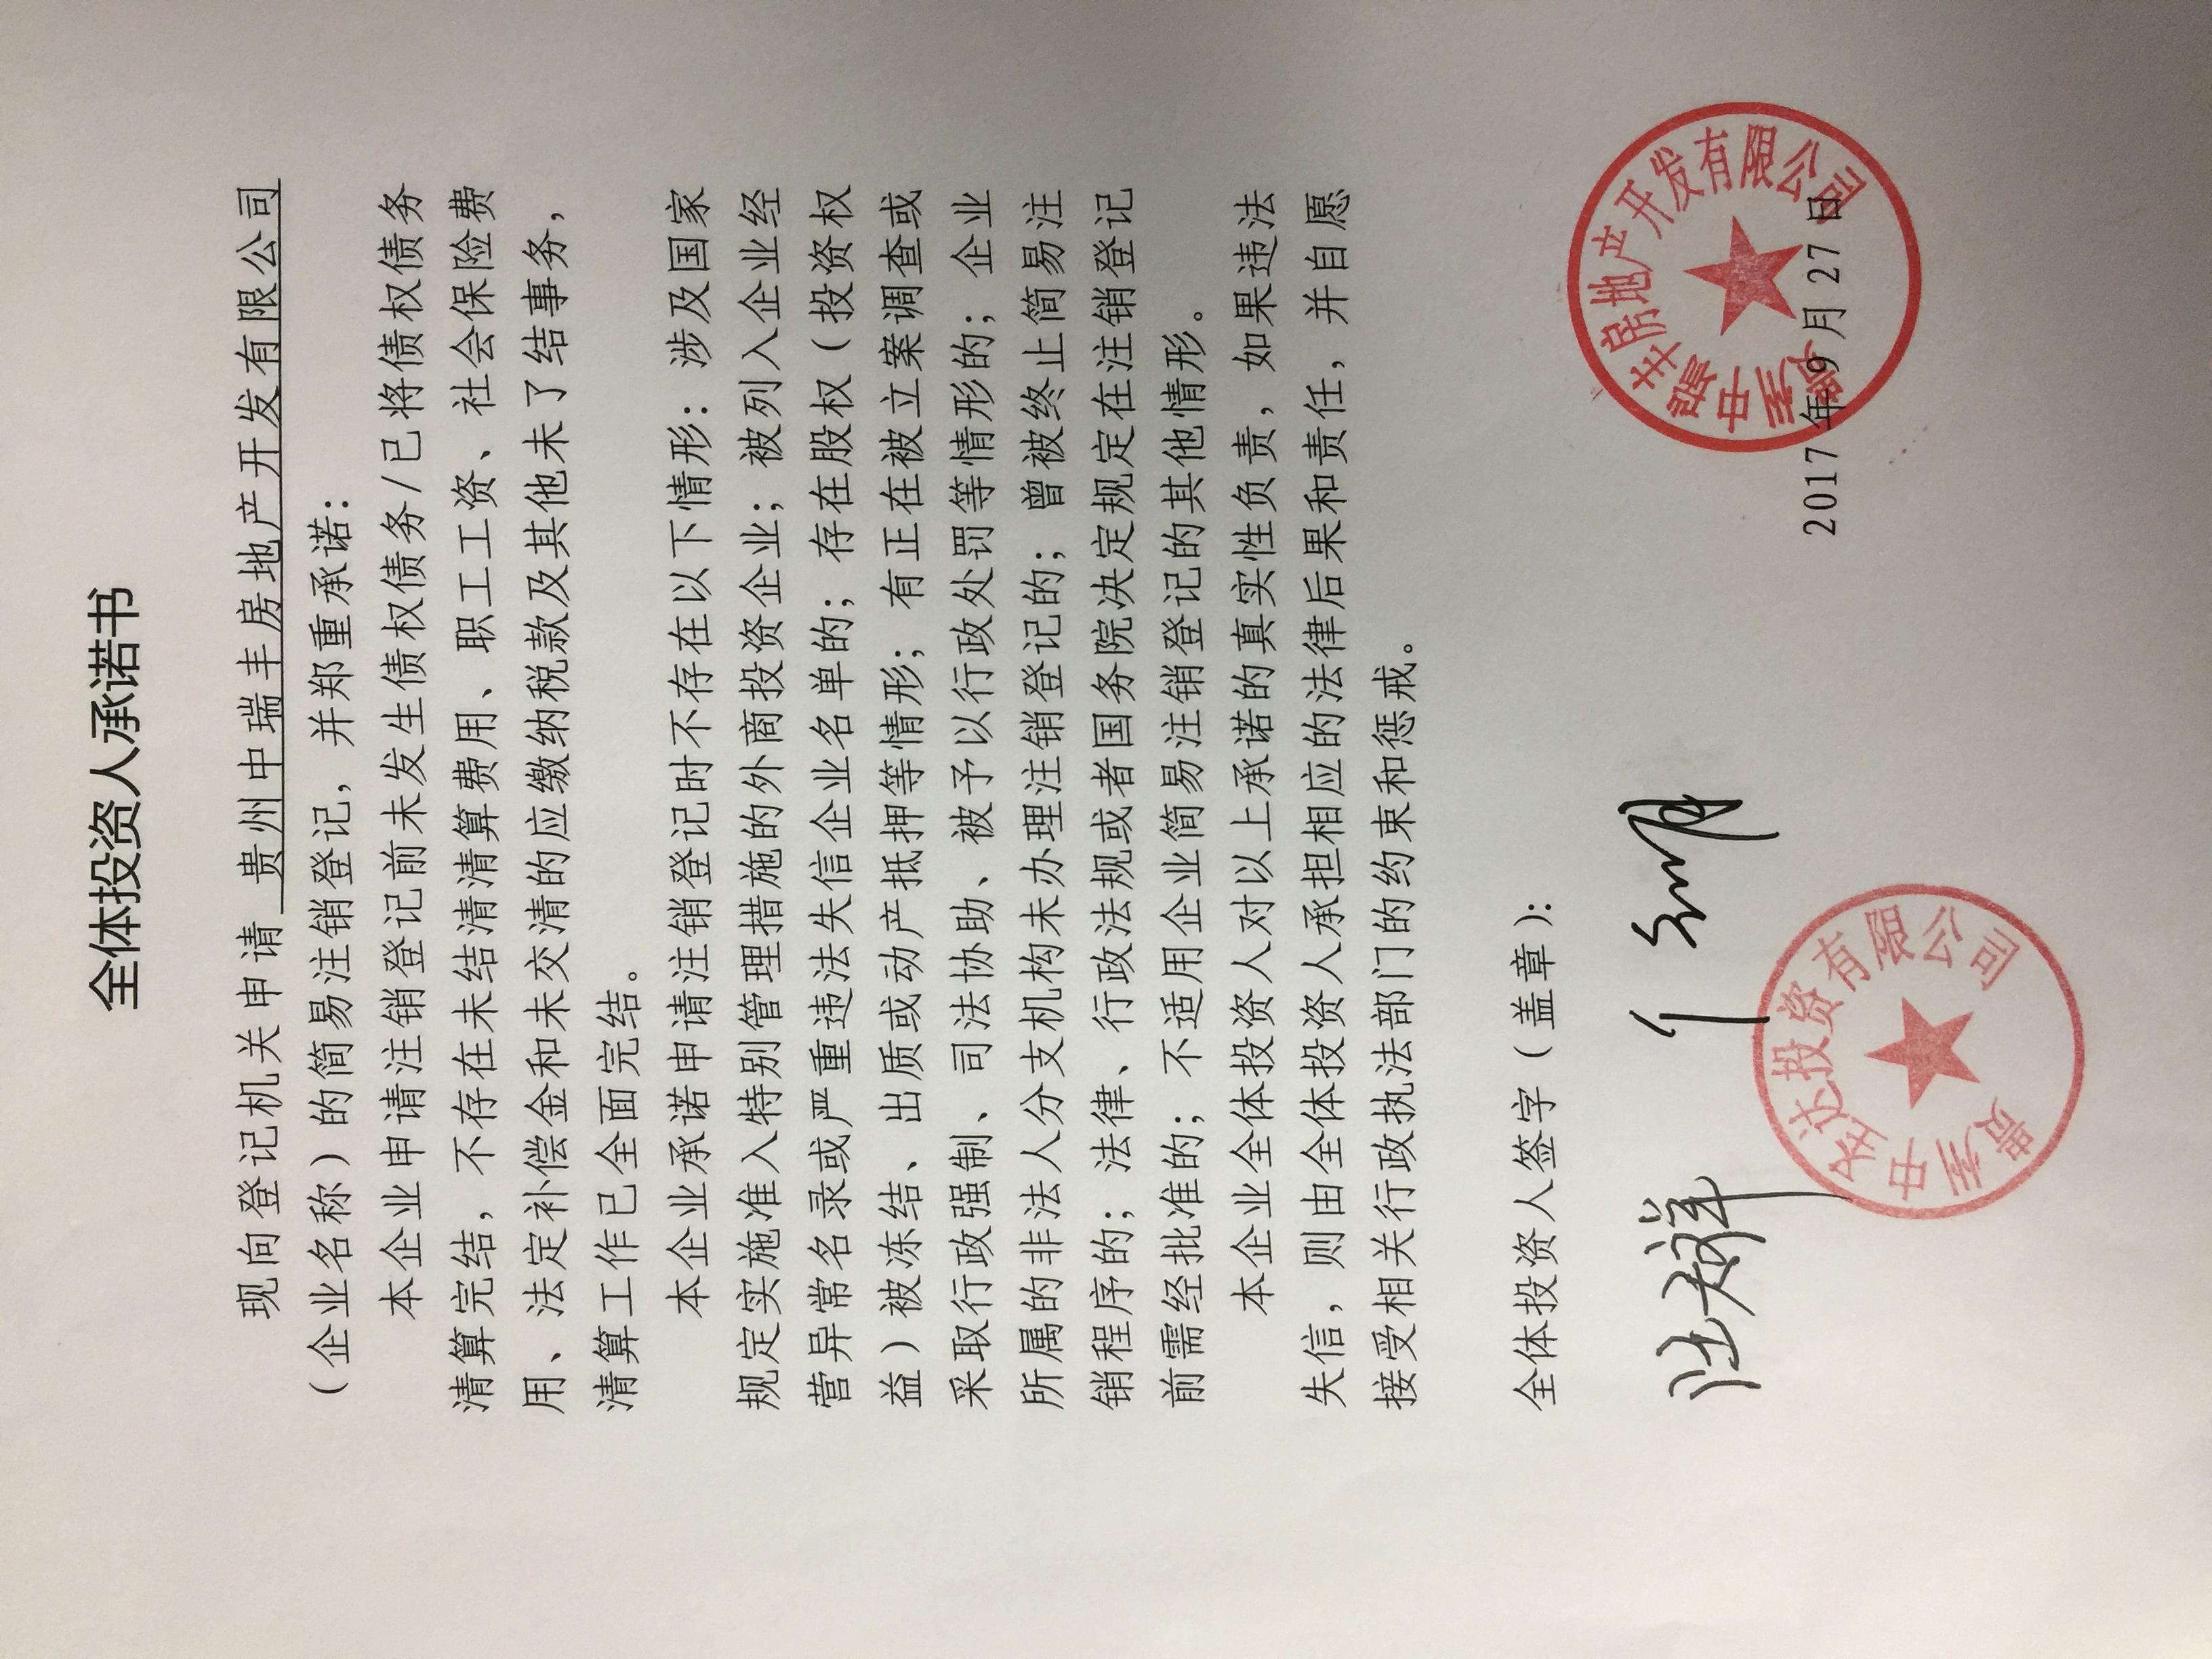 全体投资人承诺书
现向登记机关申请 贵州中瑞丰房地产开发有限公司
（企业名称）的简易注销登记，并郑重承诺：
本企业申请注销登记前未发生债权债务/已将债权债务
清算完结，不存在未结清清算费用、职工工资、社会保险费
用、法定补偿金和未交清的应缴纳税款及其他未了结事务，
清算工作已全面完结。
本企业承诺申请注销登记时不存在以下情形：涉及国家
规定实施准入特别管理措施的外商投资企业；被列入企业经
营异常名录或严重违法失信企业名单的；存在股权（投资权
益）被冻结、出质或动产抵押等情形；有正在被立案调查或
采取行政强制、司法协助、被予以行政处罚等情形的；企业
所属的非法人分支机构未办理注销登记的；曾被终止简易注
销程序的；法律、行政法规或者国务院决定规定在注销登记
前需经批准的；不适用企业简易注销登记的其他情形。
本企业全体投资人对以上承诺的真实性负责，如果违法
失信，则由全体投资人承担相应的法律后果和责任，并自愿
接受相关行政执法部门的约束和惩戒。
全体投资人签字（盖章）：
贵州中瑞丰房地产开发有限公司
2017 年 9 月 27 日
贵州中圣达投资有限公司